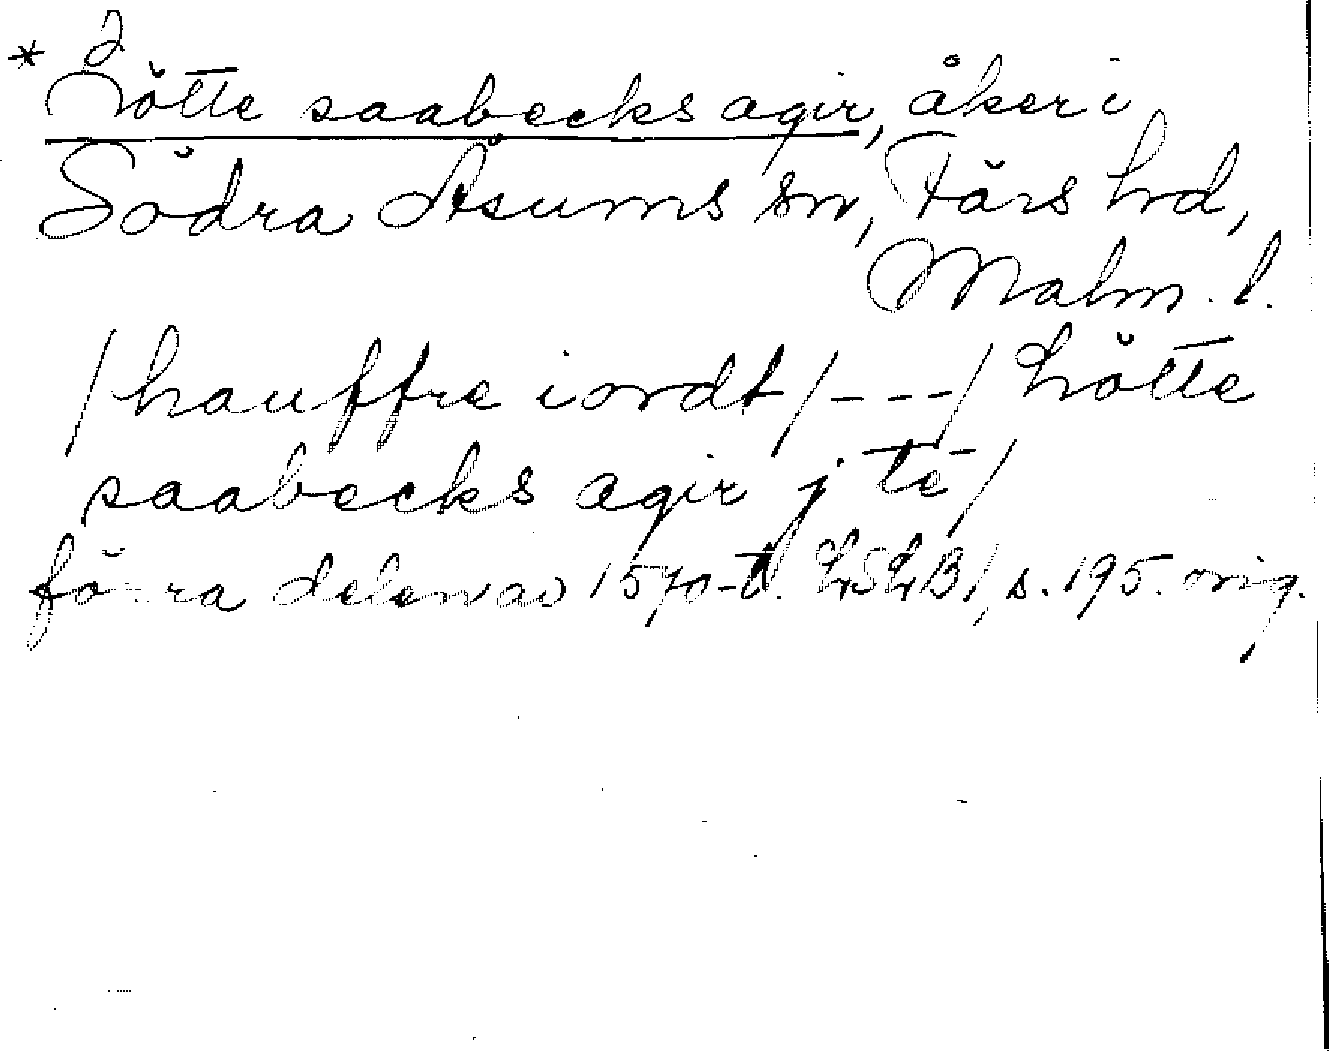 * Lötte saabecks agir, åker i
Södra Åsums sn, Färs hd,
Malm. l.
/hauffre iordt/---/ Lötte
saabecks agir j te/
förra delen av 1570-t. LSLB1, s. 195. orig.